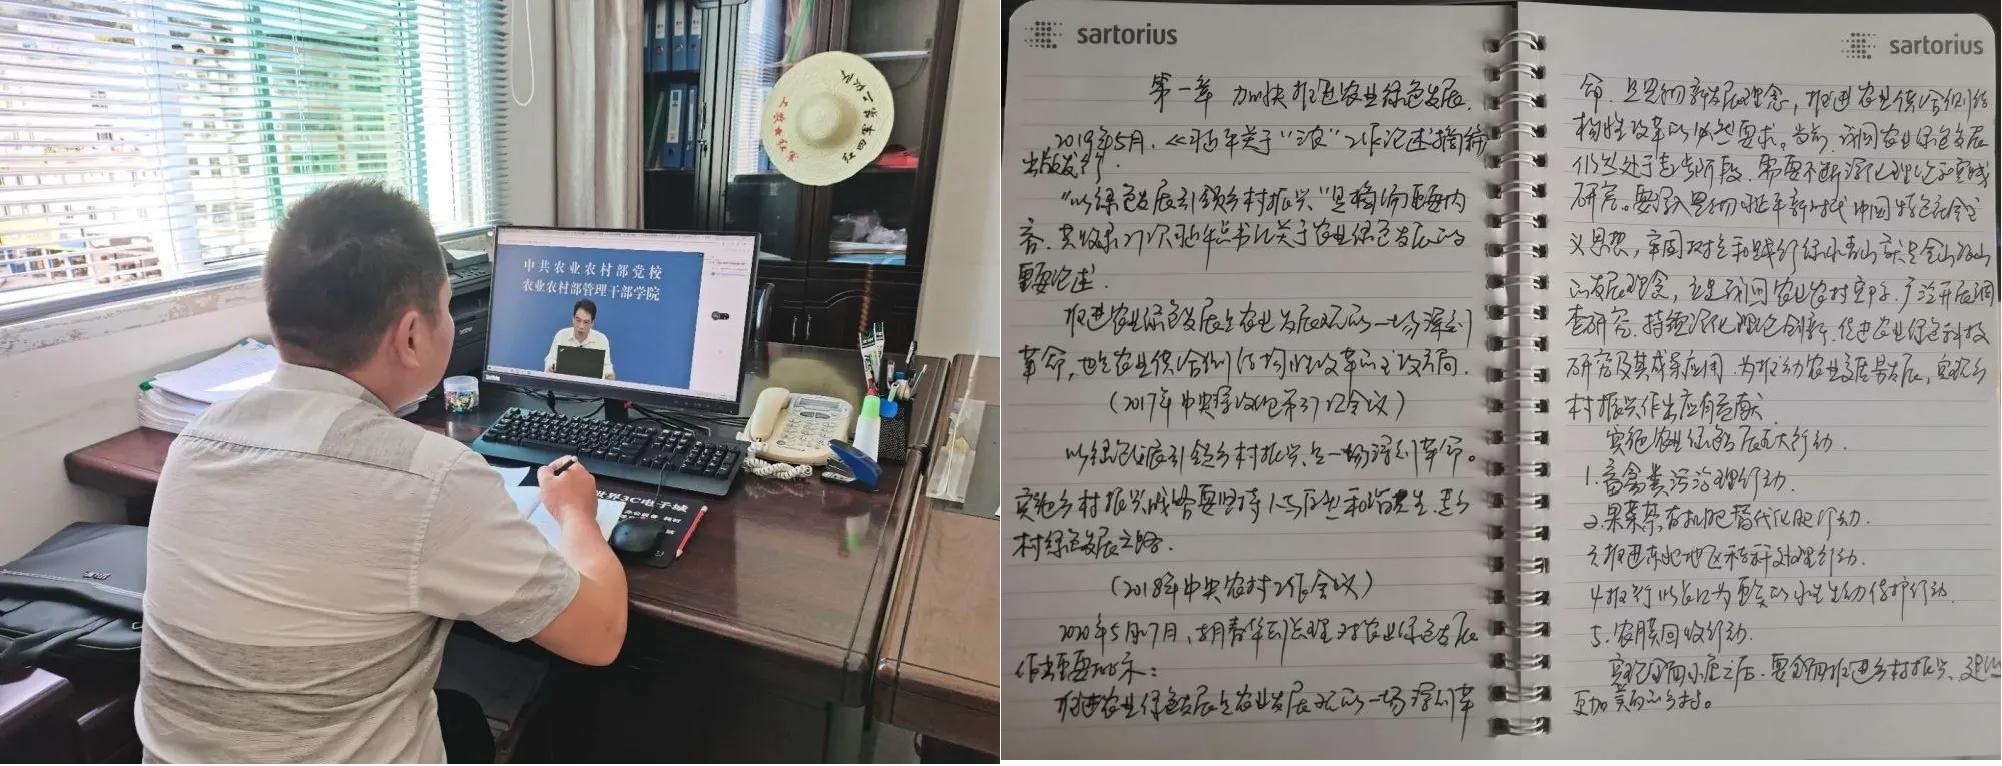 中共农业农村部党校
农业农村部管理干部学院
世界3C电子城
sartorius
第一章 加快推进农业绿色发展.
2019年5月,《习近平关于“三农”工作论述摘编
出版发行.
“以绿色发展引领乡村振兴”是摘编重要内
容.共收录27次习近平总书记关于农业绿色发展的
重要论述.
推进农业绿色发展是农业发展观的一场深刻
革命,也是农业供给侧结构性改革的主攻方向.
(2017年中央深改组第37次会议)
以绿色发展引领乡村振兴是一场深刻革命。
实施乡村振兴战略要坚持人与自然和谐共生.走乡
村绿色发展之路.
(2018年中央农村工作会议)
2020年5月17日,胡春华副总理对农业绿色发展
作出重要批示:
推进农业绿色发展是农业发展观的一场深刻革
sartorius
命.是贯彻新发展理念,推进农业供给侧结
构性改革的必然要求。当前,我国农业绿色发展
仍然处于起步阶段,需要不断深化理论和实践
研究。要深入贯彻习近平新时代中国特色社会主
义思想,牢固树立和践行绿水青山就是金山银山
的发展理念,立足我国农业农村实际.广泛开展调
查研究.持续深化理论创新,促进农业绿色科技
研究及其成果应用.为推动农业高质量发展,实现乡
村振兴作出应有贡献
实施农业绿色发展五大行动.
1.畜禽粪污治理行动.
2.果菜茶有机肥替代化肥行动.
3.推进东北地区秸秆处理行动.
4.推行以长江为重点的水生生动保护行动.
5.农膜回收行动.
实现全面小康之后.要全面推进乡村振兴,建设
更加美丽的乡村。